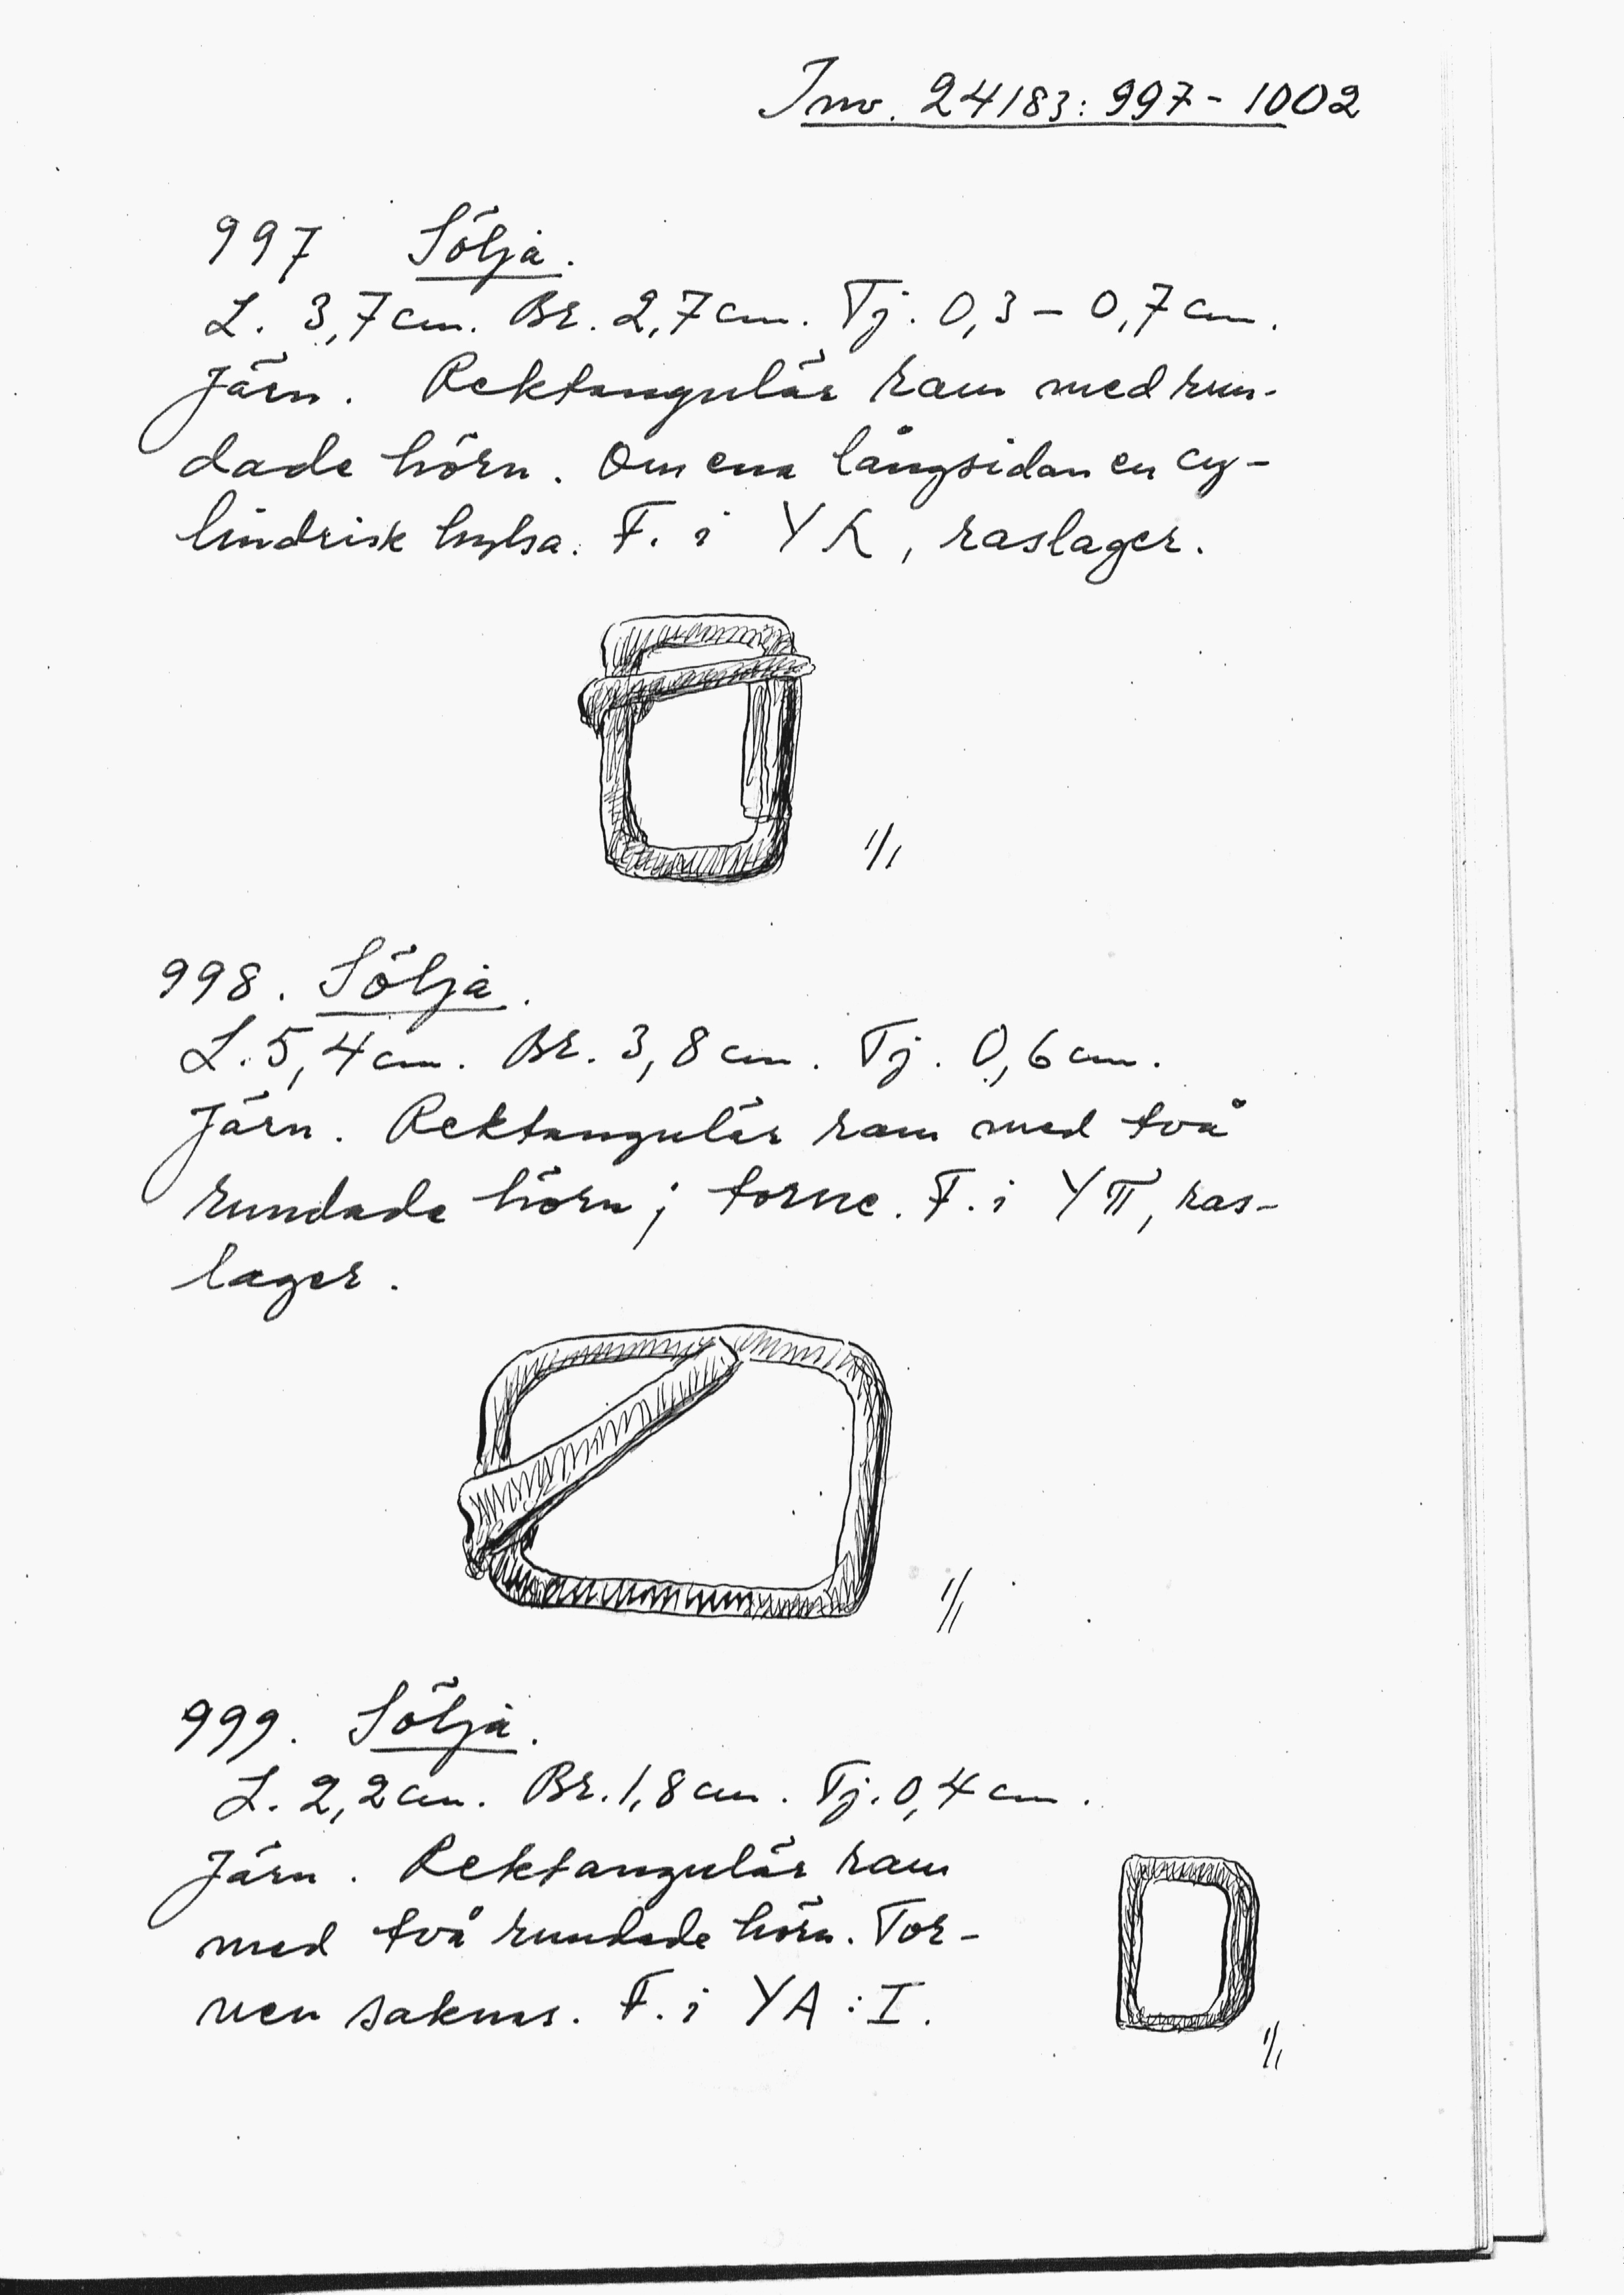 Inv. 24183: 997-1002
997 Sölja.
L. 3,7 cm. Br. 2,7 cm. Tj. 0,3 - 0,7 cm.
Järn. Rektangulär ram med run-
dade hörn. Om ena långsidan en cy-
lindrisk hylsa. F. i YK, raslager.
1/1
998. Sölja.
L. 5,4 cm. Br. 3,8 cm. Tj. 0,6 cm.
Järn. Rektangulär ram med två
rundade hörn; torne. F. i YΠ, ras-
lager.
1/1
999. Sölja.
L. 2,2 cm. Br. 1,8 cm. Tj. 0,4 cm.
Järn. Rektangulär ram
med två rundade hörn. Tor-
nen saknas. F. i YA:I.
1/1